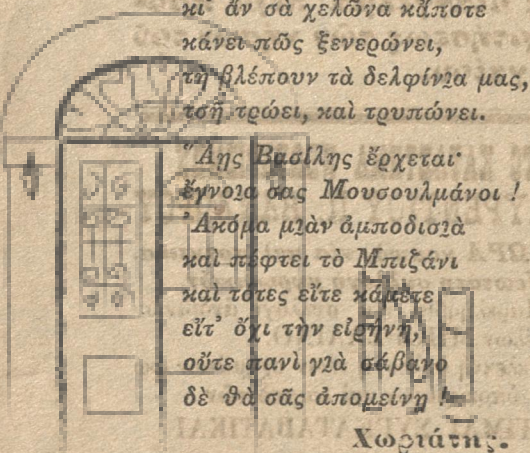 κι' ἄν σὰ χελῶνα κάποτε
κάνει πῶς ξενερώνει,
τὴ βλέπουν τὰ δελφίνια μας,
τσῆ τρώει, καὶ τρυπώνει.
Ἅης Βασίλης ἔρχεται·
ἔγνοια σας Μουσουλμάνοι !
Ἀκόμα μιὰν ἀμποδισιὰ
καὶ πέφτει τὸ Μπιζάνι
καὶ τότες εἴτε κάμετε
εἴτ' ὄχι τὴν εἰρήνη,
οὔτε πανὶ γιὰ σάβανο
δὲ θὰ σᾶς ἀπομείνῃ !
Χωριάτης.